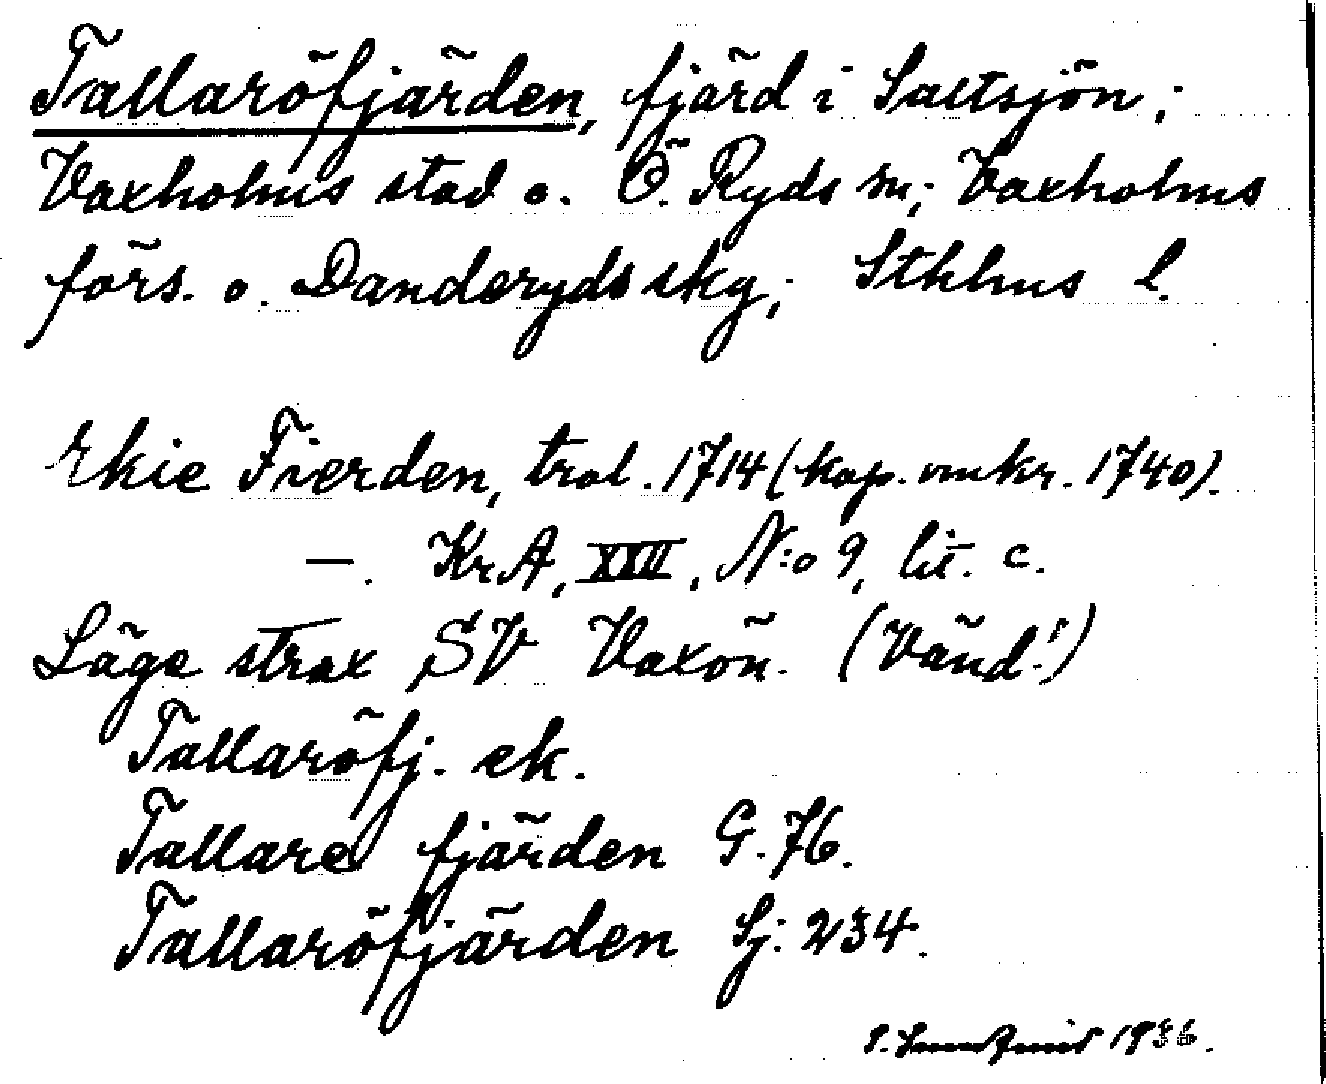 Tallaröfjärden, fjärd i Saltsjön;
Vaxholms stad o. Ö. Ryds sn; Vaxholms
förs. o. Danderyds skg; Sthlms l.
Ekie Fierden, trol. 1714 (kop. omkr. 1740).
—. KrA, XXII, N:o 9, lit. c.
Läge strax SV Vaxön. (Vänd!)
Tallaröfj. ek.
Tallare fjärden G. 76.
Tallaröfjärden Sj: 234.
1936.